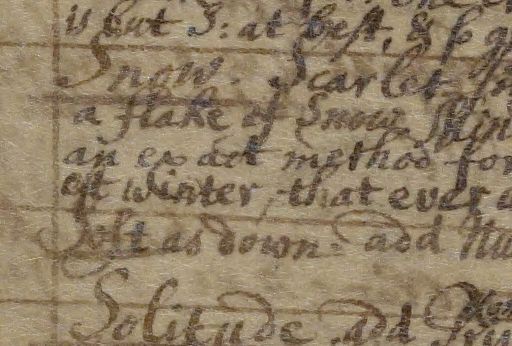 is but S: at best, &
Snow. Scarlet
a flake of Snow
an exact method for
est winter, that ever
Soft as down. add
Solitude. add